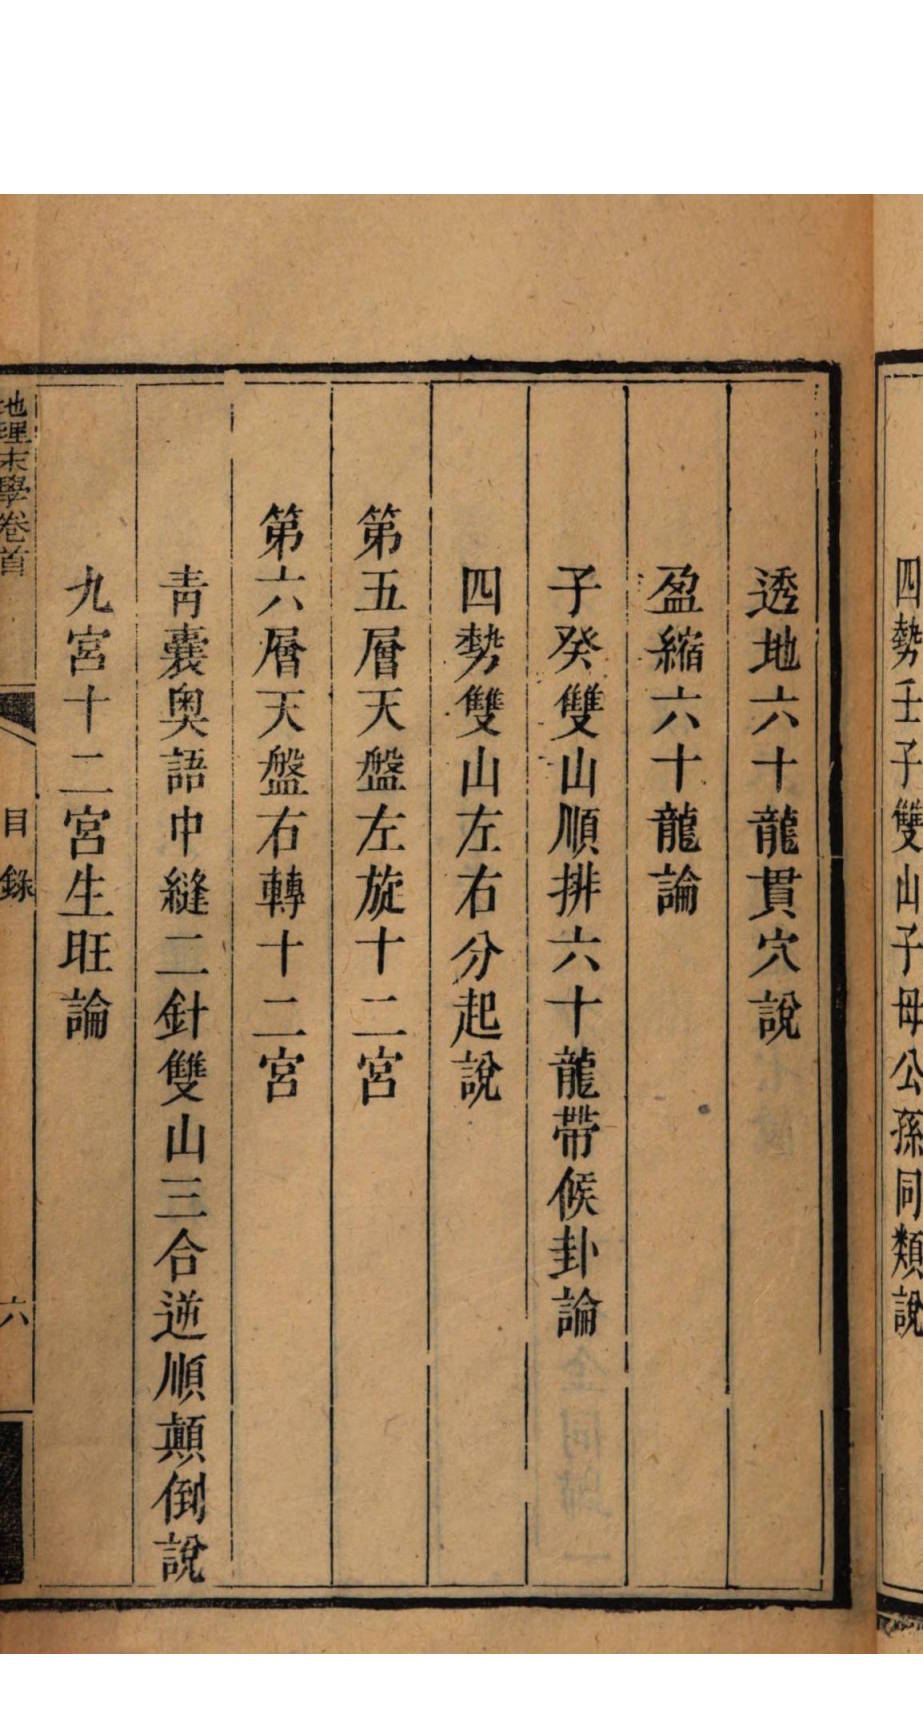 四勢壬子雙山子母公孫同類說
透地六十龍貫穴說
盈縮六十龍論
子癸雙山順排六十龍帶候卦論
四勢雙山左右分起說
第五層天盤左旋十二宮
第六層天盤右轉十二宮
靑囊奧語中縫二針雙山三合逆順顛倒說
九宮十二宮生旺論
地理末學卷首
目錄
六